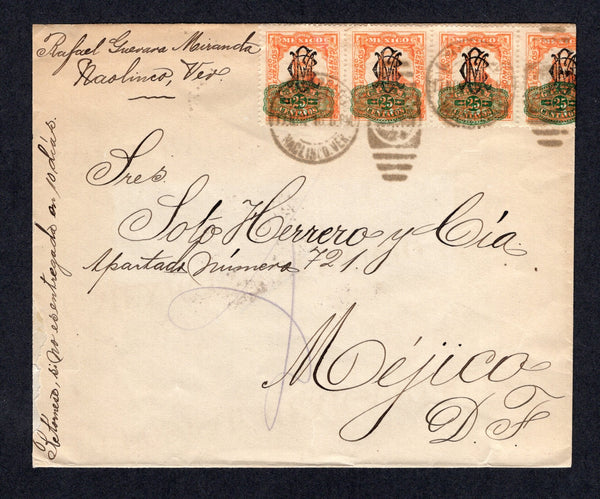 Rafael Guevara Miranda
Naolinco, Ver.
MEXICO MEXICO MEXICO MEXICO
25 25 25 25
CENTAVOS CENTAVOS CENTAVOS
NAOLINCO, VER.
Sres.
Soto Herrero y Cía.
Apartado número 721.
Méjico
D. F.
si no es entregado en 10 días.